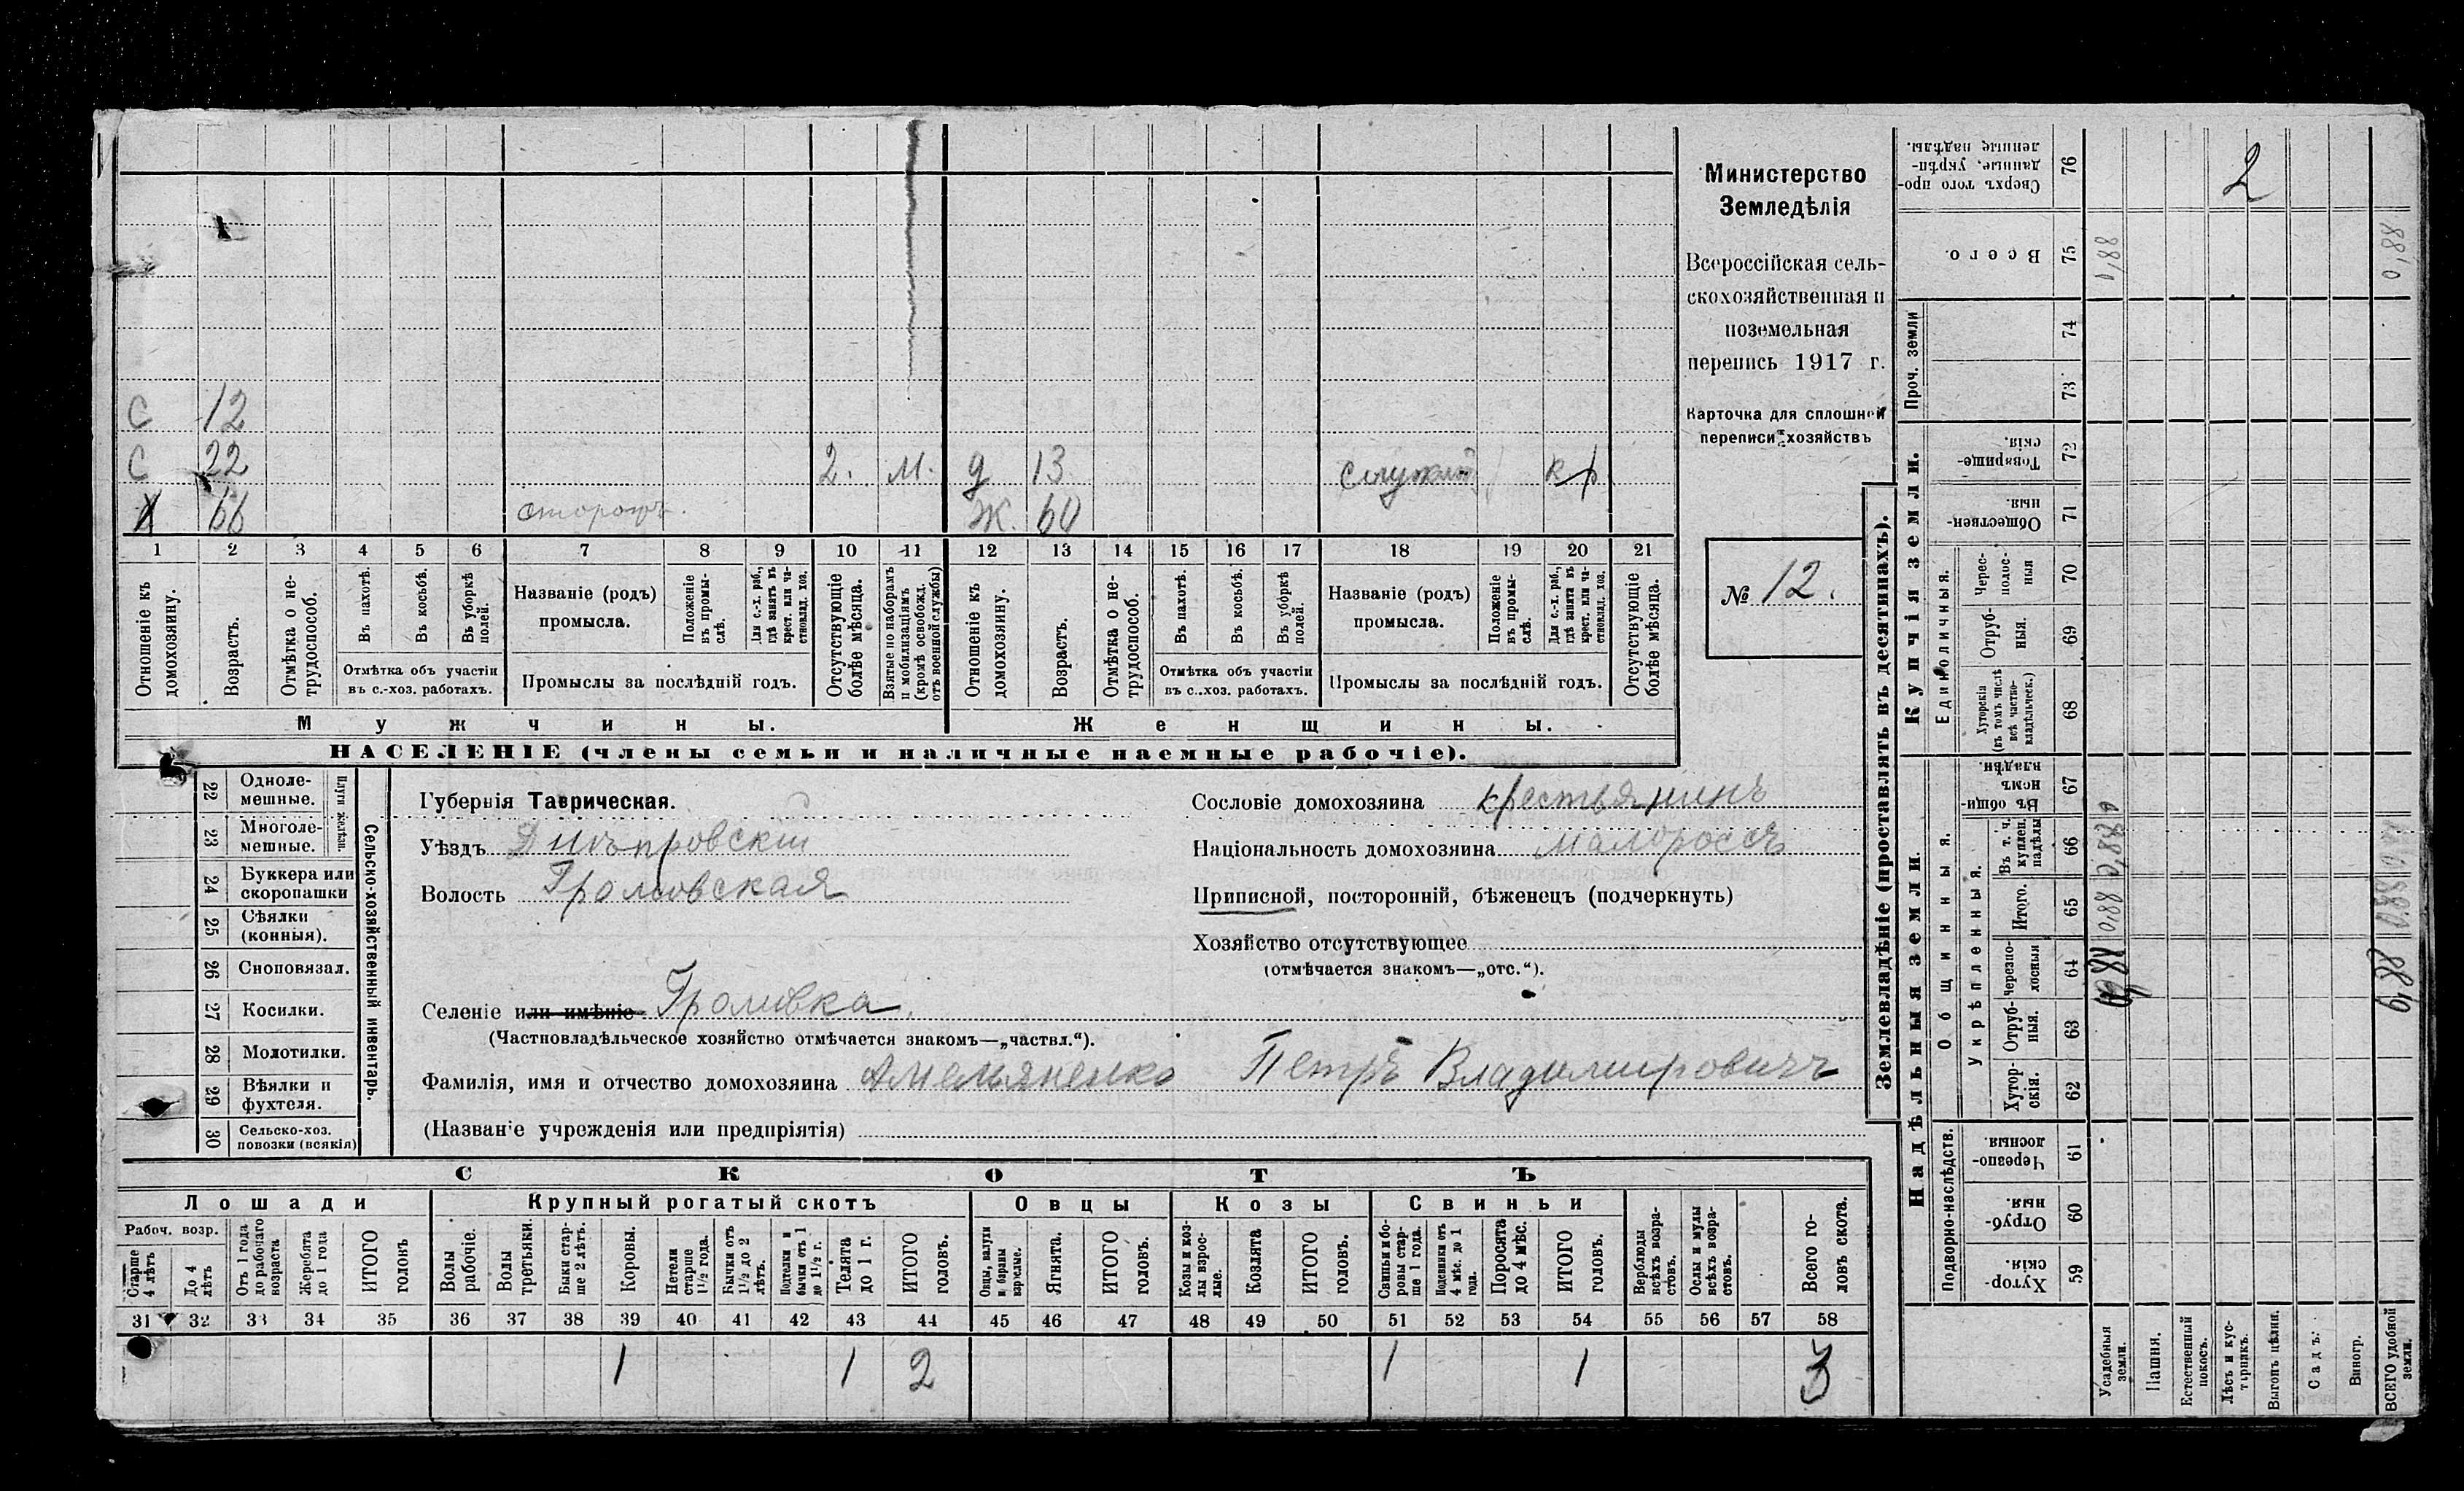 С 12
С 22 2. М. д 13 кр
Х 66 сторожъ. Ж. 60
1 2 3 4 5 6 7 8 9 10 11 12 13 14 15 16 17 18 19 20 21
Отношеніе къ домохозяину.
Возрастъ.
Отмѣтка о не-
трудоспособ.
Въ пахотѣ.
Въ косьбѣ.
Въ уборкѣ
полей.
Отмѣтка объ участіи
въ с.-хоз. работахъ.
Названіе (родъ)
промысла.
Положеніе
въ промы-
слѣ.
Для с.-х. раб.,
гдѣ занятъ въ
крест. или ча-
стновлад. хоз.
Промыслы за послѣдній годъ.
Отсутствующіе
болѣе мѣсяца.
Взятые по наборамъ
и мобилизаціямъ
(кромѣ освобожд.
отъ военной службы)
Отношеніе къ
домохозяину.
Возрастъ.
Отмѣтка о не-
трудоспособ.
Въ пахотѣ.
Въ косьбѣ.
Въ уборкѣ
полей.
Отмѣтка объ участіи
въ с..хоз. работахъ.
Названіе (родъ)
промысла.
Положеніе
въ промы-
слѣ.
Для с.-х. раб.,
гдѣ занята въ
крест. или ча-
стновлад. хоз.
Промыслы за послѣдній годъ.
Отсутствующіе
болѣе мѣсяца.
Мужчины. Женщины.
НАСЕЛЕНІЕ (члены семьи и наличные наемные рабочіе).
Министерство
Земледѣлія
Всероссійская сель-
скохозяйственная и
поземельная
перепись 1917 г.
Карточка для сплошной
переписи хозяйствъ
№ 12.
22 Одноле-
мешные.
23 Многоле-
мешные.
Плуги желѣзн.
24 Буккера или
скоропашки
25 Сѣялки
(конныя).
26 Сноповязал.
27 Косилки.
28 Молотилки.
29 Вѣялки и
фухтеля.
30 Сельско-хоз.
повозки (всякія)
Сельско-хозяйственный инвентарь.
Губернія Таврическая.
Уѣздъ Днѣпровскій
Волость Громовская
Селеніе или имѣніе Громовка.
(Частновладѣльческое хозяйство отмѣчается знакомъ—„частвл.“).
Фамилія, имя и отчество домохозяина Амельяненко Петръ Владимировичъ
(Названіе учрежденія или предпріятія)
Сословіе домохозяина крестьянинъ
Національность домохозяина малороссъ
Приписной, посторонній, бѣженецъ (подчеркнуть)
Хозяйство отсутствующее
(отмѣчается знакомъ—„отс.“).
СКОТЪ
Лошади Крупный рогатый скотъ Овцы Козы Свиньи
Рабоч. возр.
Старше
4 лѣтъ
До 4
лѣтъ
Отъ 1 года
до рабочаго
возраста
Жеребята
до 1 года
ИТОГО
головъ
Волы
рабочіе.
Волы
третьяки.
Быки стар-
ше 2 лѣтъ.
Коровы.
Нетели
старше
1½ года.
Бычки отъ
1½ до 2
лѣтъ.
Подтелки и
бычки отъ 1
до 1½ г.
Телята
до 1 г.
ИТОГО
головъ.
Овцы, валухи
и бараны
взрослые.
Ягнята.
ИТОГО
головъ.
Козы и коз-
лы взрос-
лые.
Козлята
ИТОГО
головъ.
Свиньи и бо-
ровы стар-
ше 1 года.
Подсвинки отъ
4 мѣс. до 1
года.
Поросята
до 4 мѣс.
ИТОГО
головъ.
Верблюды
всѣхъ возра-
стовъ.
Ослы и мулы
всѣхъ возра-
стовъ.
Всего го-
ловъ скота.
31 32 33 34 35 36 37 38 39 40 41 42 43 44 45 46 47 48 49 50 51 52 53 54 55 56 57 58
1 1 2 1 1 3
Землевладѣніе (проставлять въ десятинахъ).
Надѣльныя земли. Купчія земли. Проч. земли
Подворно-наслѣдств.
Общинныя.
Укрѣпленныя.
Единоличныя.
59 Хутор-
скія.
60 Отруб-
ныя.
61 Черезпо-
лосныя.
62 Хутор-
скія.
63 Отруб-
ныя.
64 Черезпо-
лосныя
65 Итого.
66 Въ т. ч.
куплен.
надѣлы
67 Въ общин-
номъ
владѣн.
68 Хуторскія
(въ томъ числѣ
всѣ частно-
владѣльческ.)
69 Отруб-
ныя.
70 Черес-
полос-
ныя
71 Обществен-
ныя.
72 Товарище-
скія.
73
74
75 Всего.
76 Сверхъ того про-
данные, укрѣп-
ленные надѣлы.
Усадебныя
земли.
Пашня.
Естественный
покосъ.
Лѣсъ и кус-
тарникъ.
Выгонъ цѣлин.
Садъ.
Виногр.
ВСЕГО удобной
земли.
2